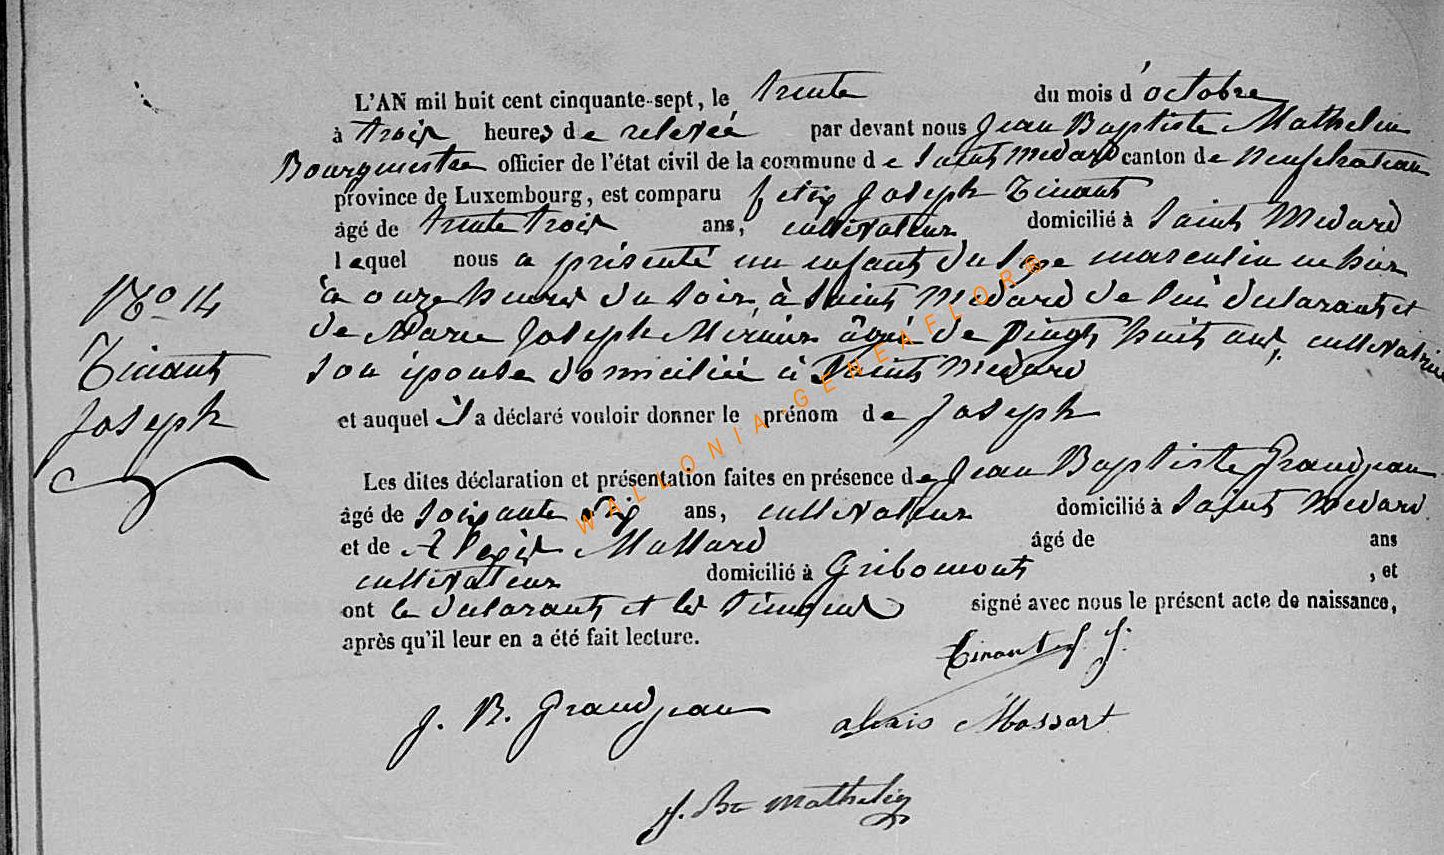 L'AN mil huit cent cinquante-sept, le trente du mois d'octobre
à trois heures de relevée par devant nous Jean Baptiste Mathelin
Bourgmestre officier de l'état civil de la commune de Saint Medard canton de Neufchateau
province de Luxembourg, est comparu Felix Joseph Tinant
âgé de trente trois ans, cultivateur domicilié à Saint Medard
lequel nous a présenté un enfant du sexe masculin né hier
à onze heures du soir à Saint Medard de lui déclarant et
de Marie Joseph âgée de vingt huit ans, cultivatrice
son épouse domiciliée à Saint Medard
et auquel il a déclaré vouloir donner le prénom de Joseph
No 14
Tinant
Joseph
Les dites déclaration et présentation faites en présence de Jean Baptiste Grandjean
âgé de soixante six ans, cultivateur domicilié à Saint Medard
et de Alexis Massard âgé de ans
cultivateur domicilié à Gribomont , et
ont le déclarant et les témoins signé avec nous le présent acte de naissance,
après qu'il leur en a été fait lecture.
Tinant f. J.
J. B. Grandjean alexis Massart
J. Bte Mathelin
WALLONIA-GENEAFLORE